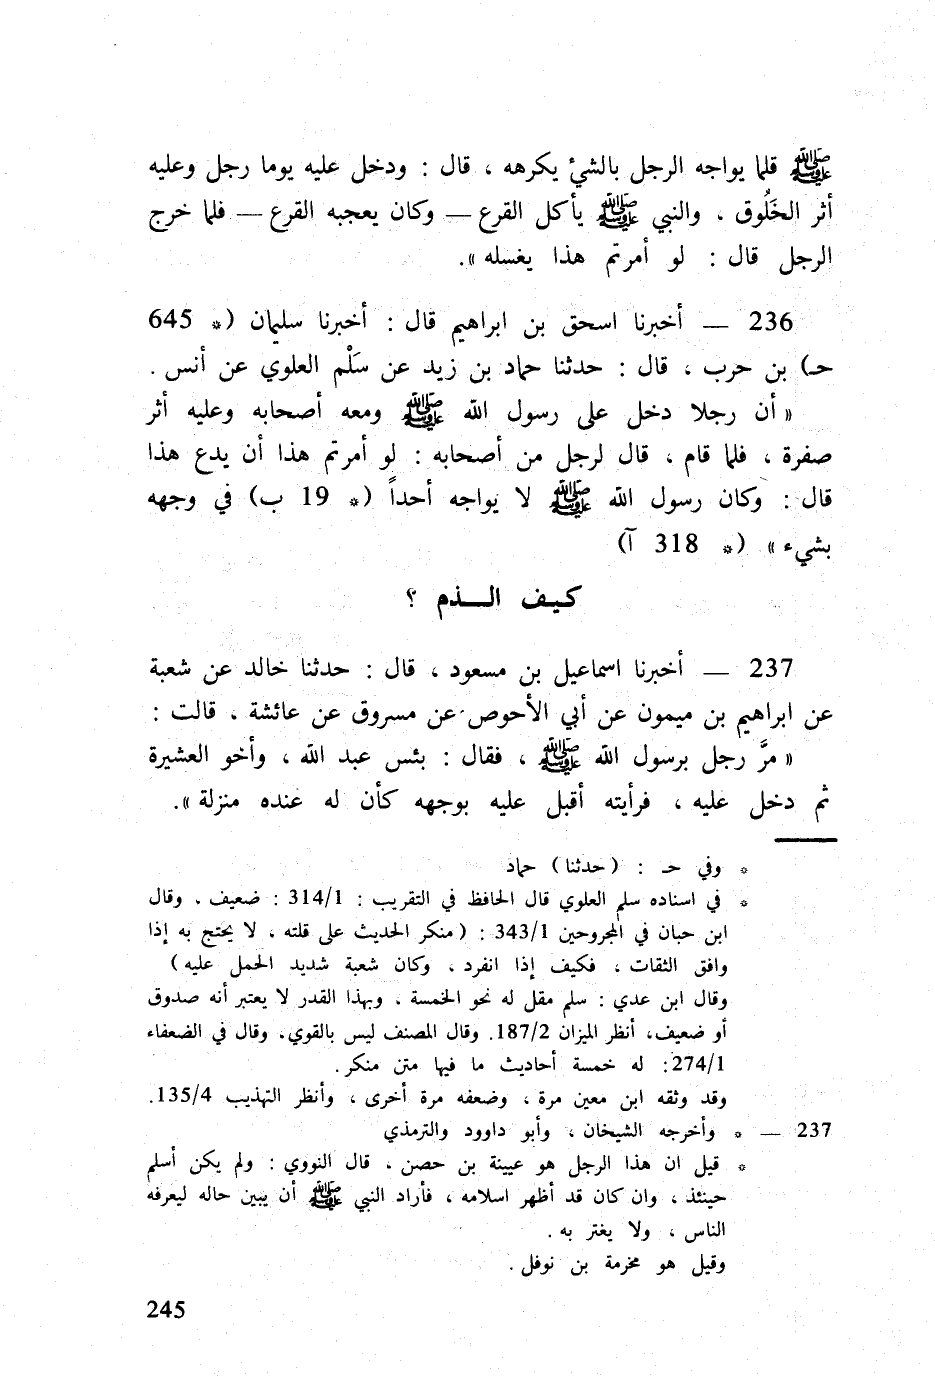 ﷺ قلما يواجه الرجل بالشيْ يكرهه ، قال : ودخل عليه يوما رجل وعليه
أثر الخَلُوق ، والنبي ﷺ يأكل القرع — وكان يعجبه القرع — فلما خرج
الرجل قال : لو أمرتم هذا يغسله ».
236 — أخبرنا اسحق بن ابراهيم قال : أخبرنا سليمان (* 645
حـ) بن حرب ، قال : حدثنا حماد بن زيد عن سَلْم العلوي عن أنس .
« أن رجلا دخل على رسول الله ﷺ ومعه أصحابه وعليه أثر
صفرة ، فلما قام ، قال لرجل من أصحابه : لو أمرتم هذا أن يدع هذا
قال : وكان رسول الله ﷺ لا يواجه أحداً (* 19 ب) في وجهه
بشيء » (* 318 آ)
كيف الـــذم ؟
237 — أخبرنا اسماعيل بن مسعود ، قال : حدثنا خالد عن شعبة
عن ابراهيم بن ميمون عن أبي الأحوص عن مسروق عن عائشة ، قالت :
« مرَّ رجل برسول الله ﷺ ، فقال : بئس عبد الله ، وأخو العشيرة
ثم دخل عليه ، فرأيته أقبل عليه بوجهه كأن له عنده منزلة ».
* وفي حـ : (حدثنا) حماد
* في اسناده سلم العلوي قال الحافظ في التقريب : 314/1 : ضعيف ، وقال
ابن حبان في المجروحين 343/1 : (منكر الحديث على قلته ، لا يحتج به إذا
وافق الثقات ، فكيف إذا انفرد ، وكان شعبة شديد الحمل عليه)
وقال ابن عدي : سلم مقل له نحو الخمسة ، وبهذا القدر لا يعتبر أنه صدوق
أو ضعيف، أنظر الميزان 187/2. وقال المصنف ليس بالقوي، وقال في الضعفاء
274/1: له خمسة أحاديث ما فيها متن منكر.
وقد وثقه ابن معين مرة ، وضعفه مرة أخرى ، وأنظر التهذيب 135/4.
237 — * وأخرجه الشيخان ، وأبو داوود والترمذي
* قيل ان هذا الرجل هو عيينة بن حصن ، قال النووي : ولم يكن أسلم
حينئذ ، وان كان قد أظهر اسلامه ، فأراد النبي ﷺ أن يبين حاله ليعرفه
الناس ، ولا يغتر به .
وقيل هو مخرمة بن نوفل .
245